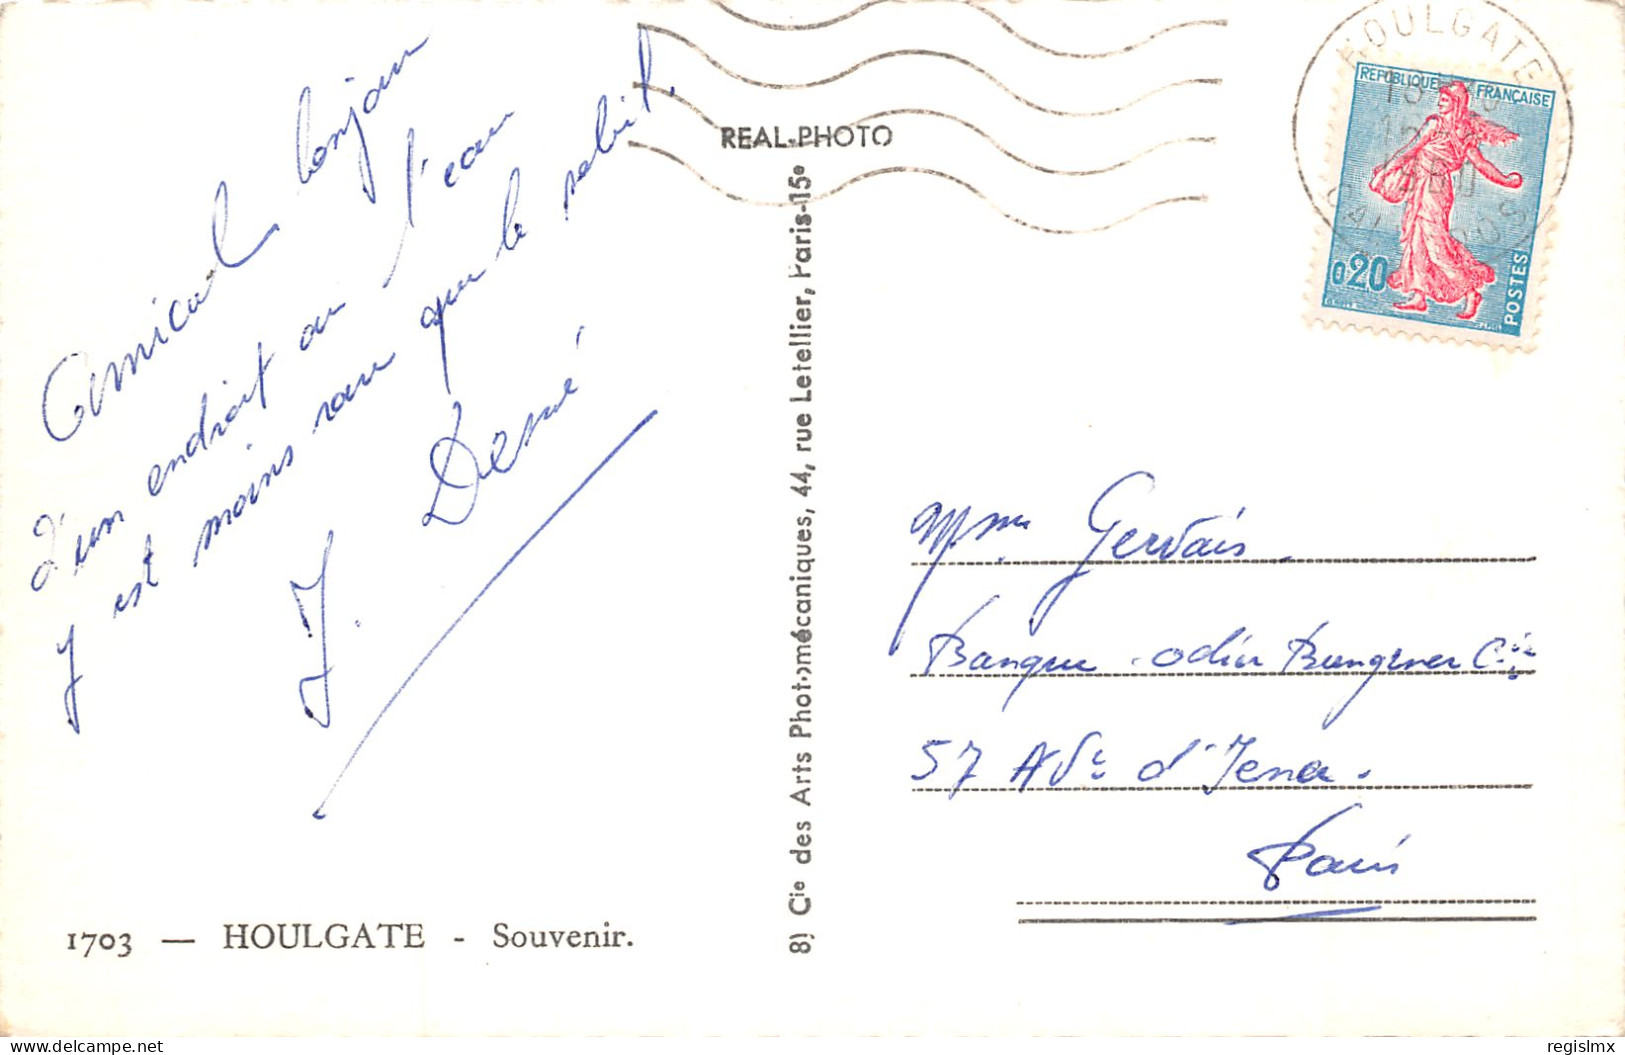 Amical bonjour
d'un endroit où l'eau
y est moins rare que le soleil.
J. Denné
1703 — HOULGATE - Souvenir.
REAL-PHOTO
8) Cie des Arts Photomécaniques, 44, rue Letellier, Paris-15e
HOULGATE
1960
CALVADOS
REPUBLIQUE FRANÇAISE
0,20
POSTES
Mme Gervais.
Banque Odier Bungener Cie
57 Ave d'Iena.
Paris
© delcampe.net
regislmx